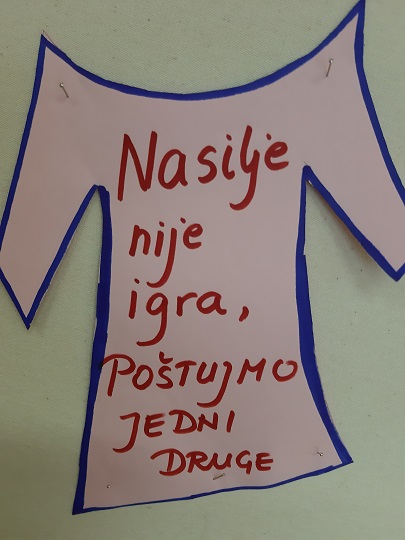 Nasilje
nije
igra,
POŠTUJMO
JEDNI
DRUGE